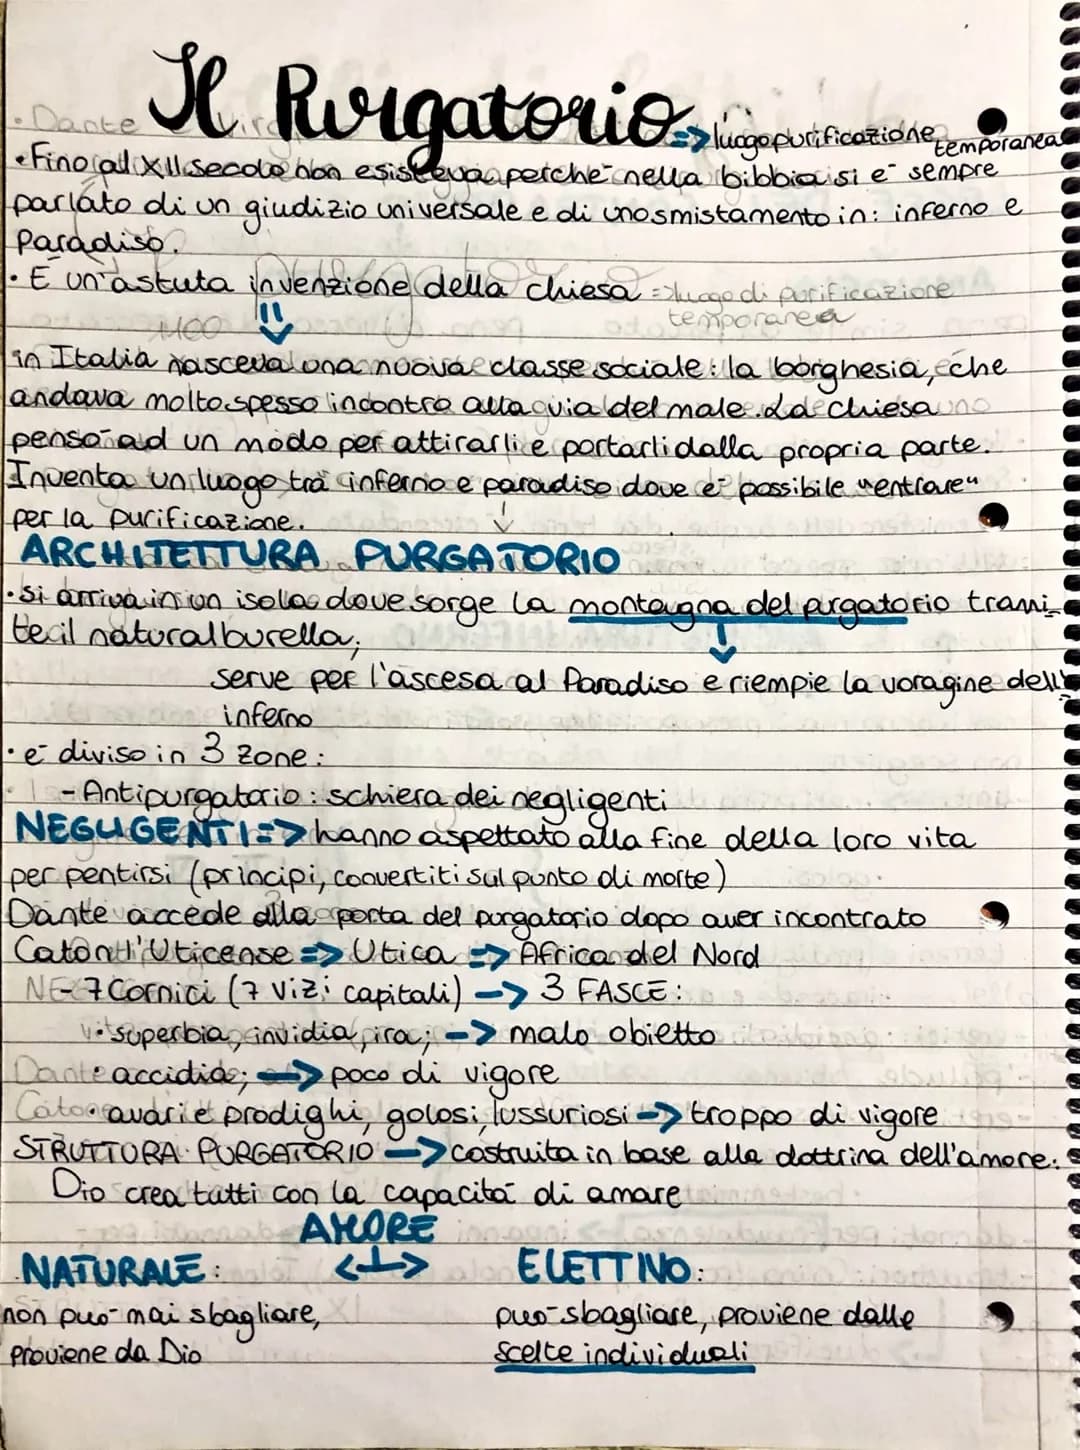 Il Purgatorio => luogo purificazione temporanea
• Fino al XII secolo non esisteva perché nella bibbia si è sempre
parlato di un giudizio universale e di uno smistamento in: inferno e
Paradiso.
• È un'astuta invenzione della chiesa => luogo di purificazione
temporanea
in Italia nasceva una nuova classe sociale: la borghesia, che
andava molto spesso incontro alla via del male. La chiesa
pensò ad un modo per attirarli e portarli dalla propria parte.
Inventa un luogo tra inferno e paradiso dove è possibile "entrare"
per la purificazione.
ARCHITETTURA PURGATORIO
• Si arriva in un isola dove sorge la montagna del purgatorio trami-
te il natural burella;
serve per l'ascesa al Paradiso e riempie la voragine dell'
inferno
• è diviso in 3 zone:
- Antipurgatorio: schiera dei negligenti
NEGLIGENTI => hanno aspettato alla fine della loro vita
per pentirsi (principi, convertiti sul punto di morte)
Dante accede alla porta del purgatorio dopo aver incontrato
Caton l'Uticense => Utica => Africa del Nord
- 7 Cornici (7 vizi capitali) -> 3 FASCE:
• superbia, invidia, ira; -> malo obietto
• accidia; -> poco di vigore
• avari e prodighi, golosi, lussuriosi -> troppo di vigore
STRUTTURA PURGATORIO -> costruita in base alla dottrina dell'amore:
Dio crea tutti con la capacità di amare
AMORE
NATURALE: <-> ELETTIVO:
non può mai sbagliare, può sbagliare, proviene dalle
proviene da Dio scelte individuali